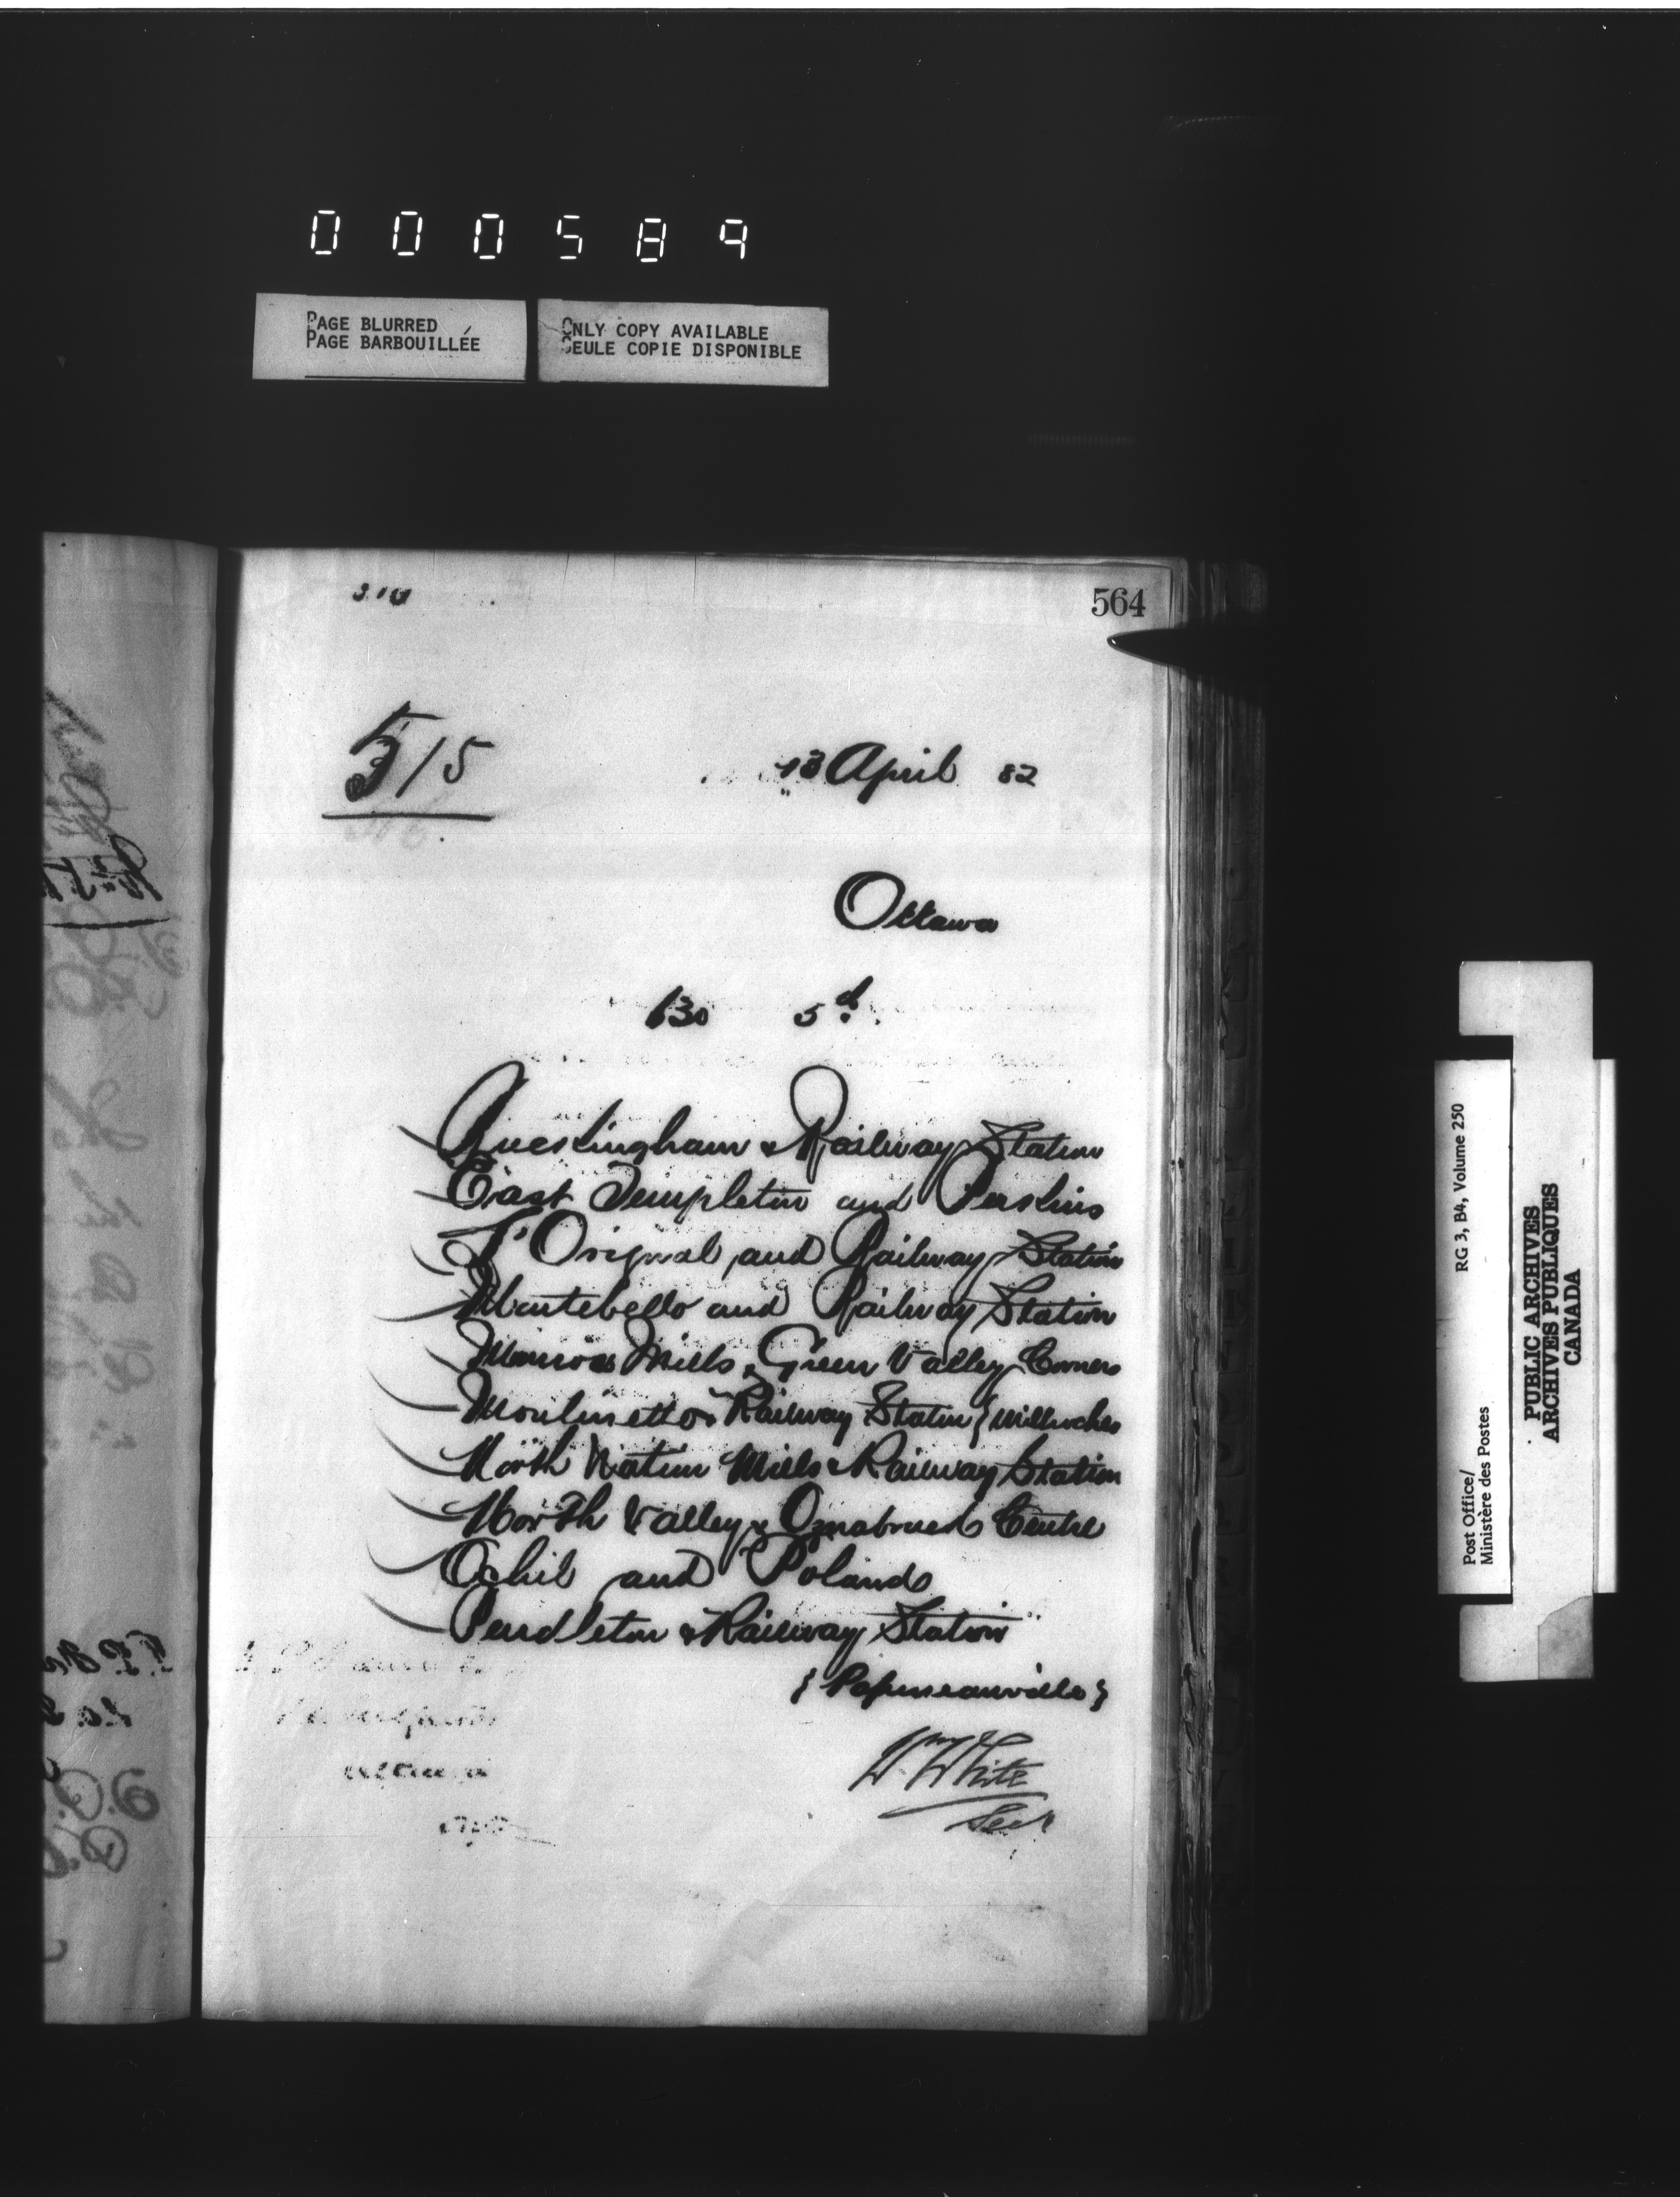 000589
PAGE BLURRED
PAGE BARBOUILLÉE
ONLY COPY AVAILABLE
SEULE COPIE DISPONIBLE
564
515
13 April 82
Ottawa
630 5d.
& Railway Station
East Templeton and Perkins
L'Orignal and Railway Station
Montebello and Railway Station
Munroes Mills & Green Valley Corners
Moulinette & Railway Station {Milleroches
North Nation Mills & Railway Station
North Valley & Osnabruck Centre
Ochil and Poland
Pendleton & Railway Station
{Papineauville}
Wm White
Secy
Post Office/
Ministère des Postes
RG 3, B4, Volume 250
PUBLIC ARCHIVES
ARCHIVES PUBLIQUES
CANADA